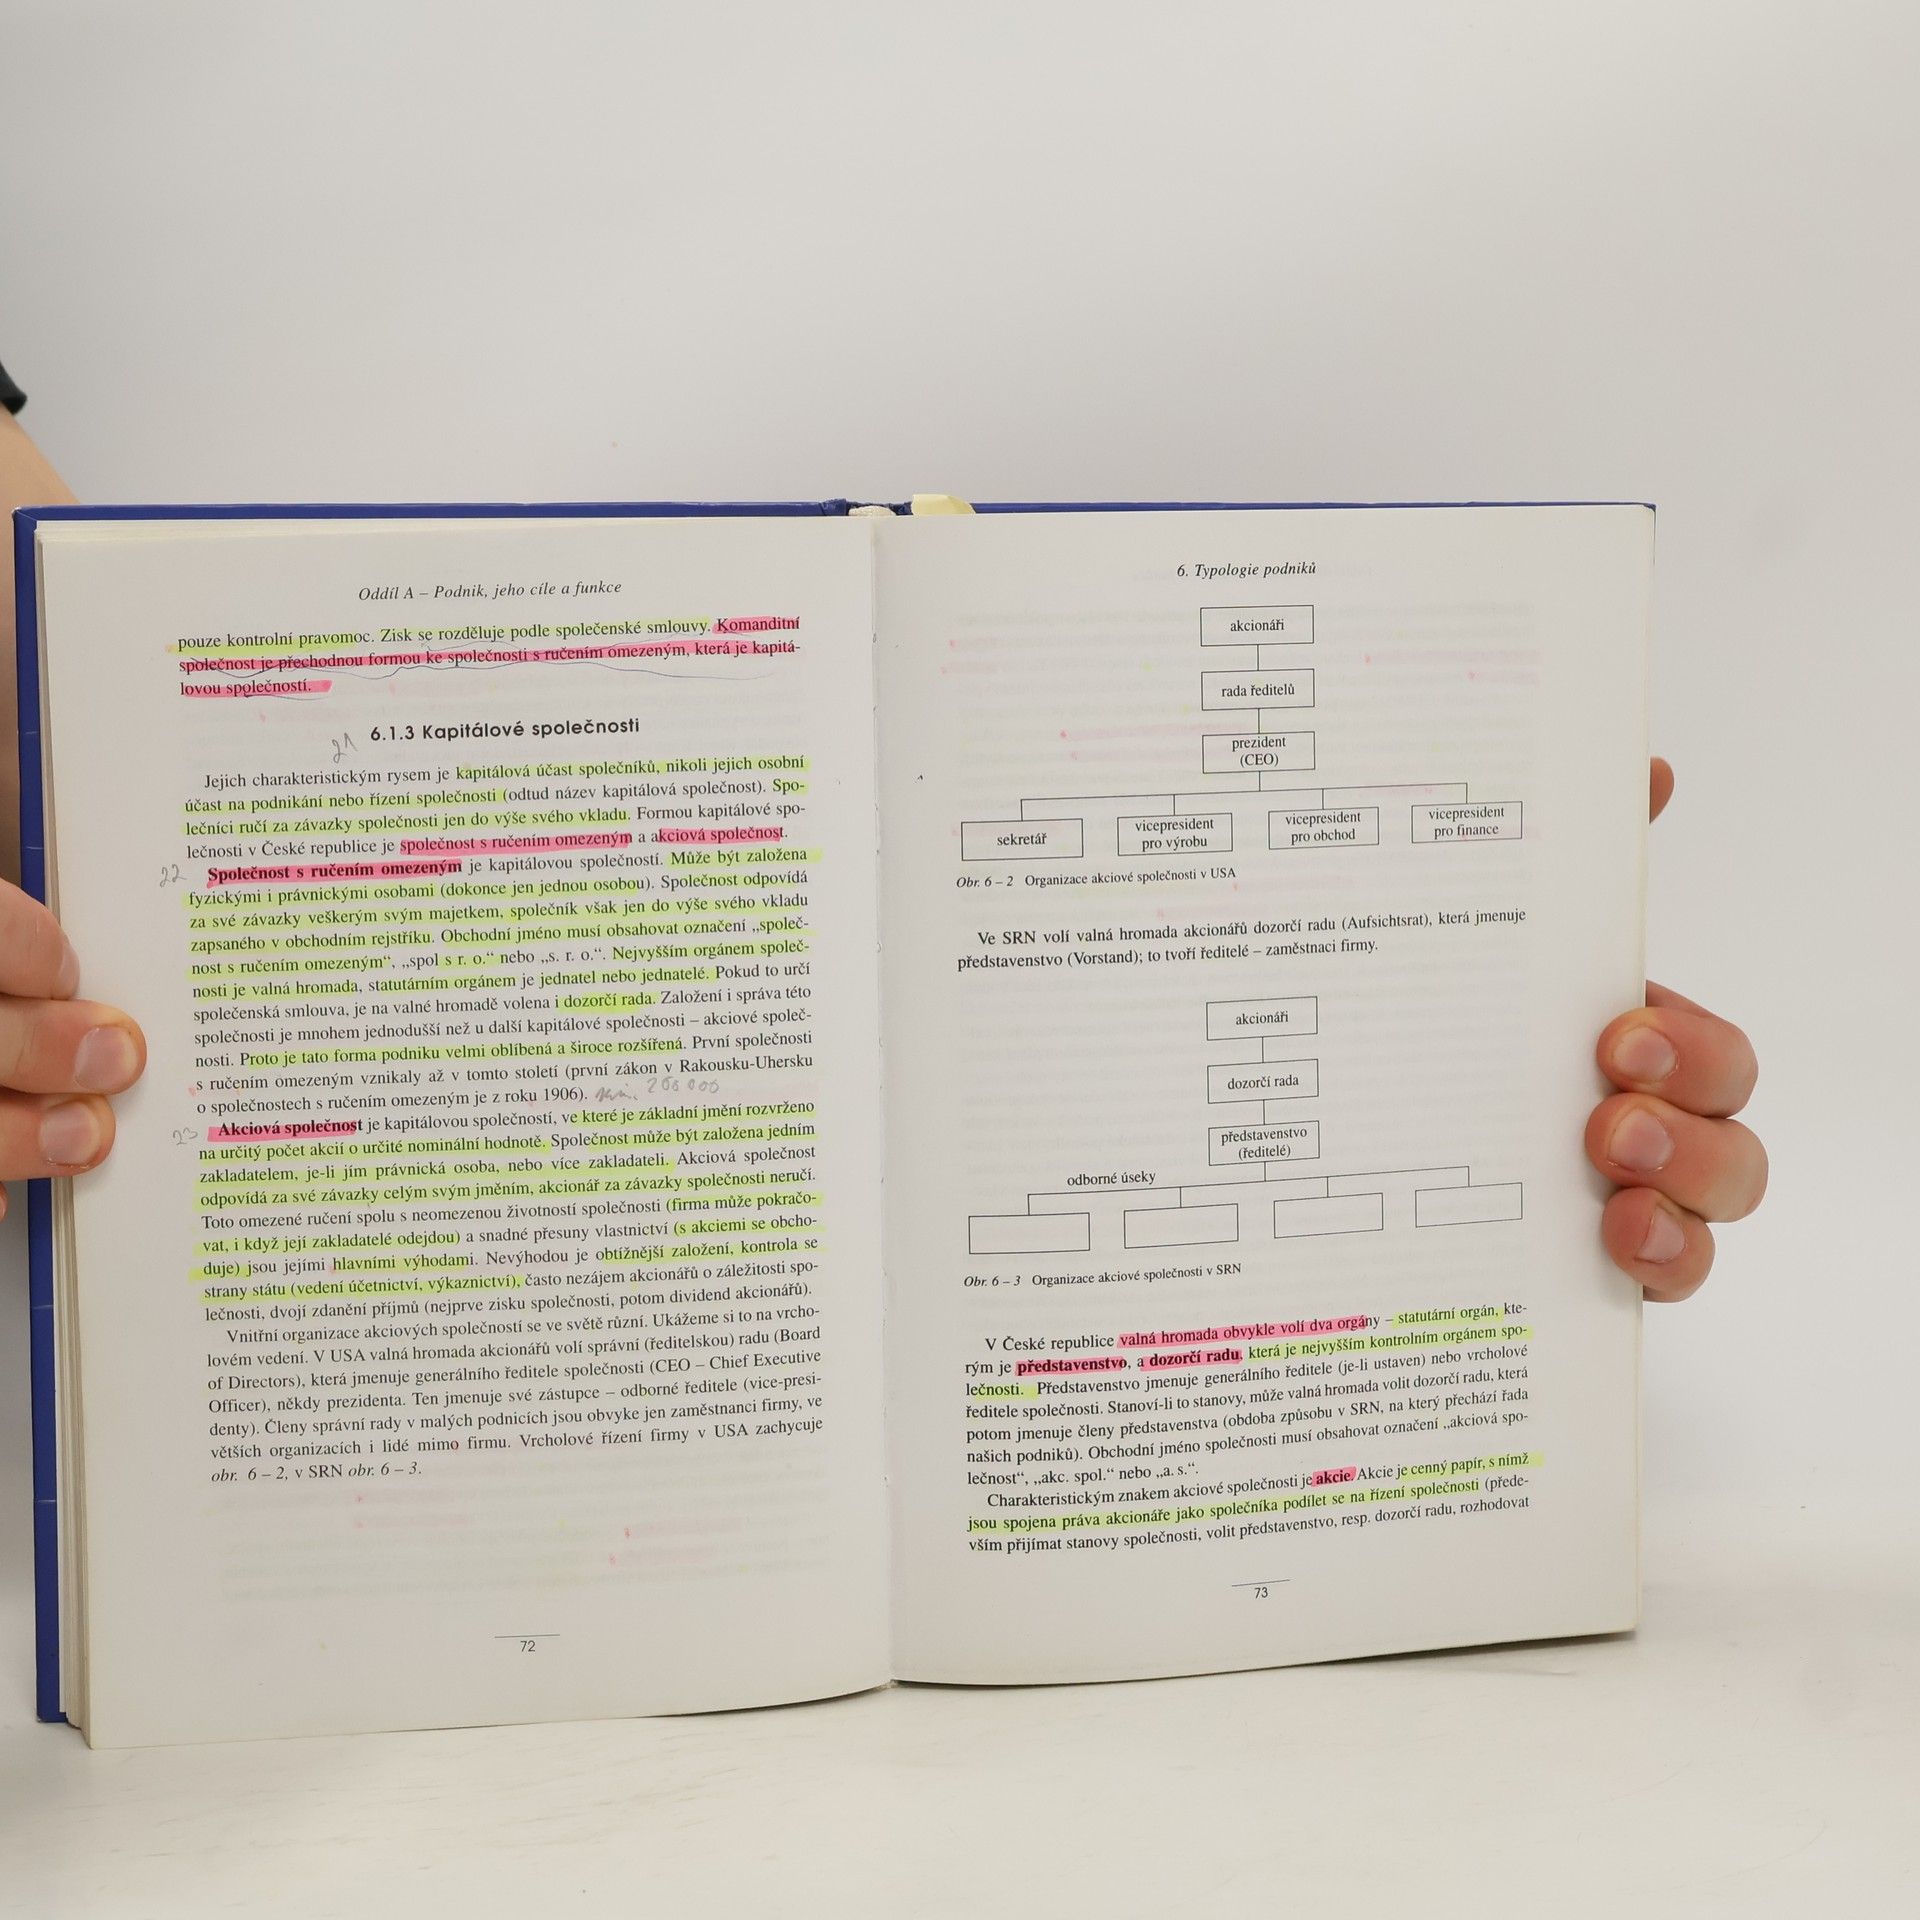 Oddíl A – Podnik, jeho cíle a funkce
pouze kontrolní pravomoc. Zisk se rozděluje podle společenské smlouvy. Komanditní
společnost je přechodnou formou ke společnosti s ručením omezeným, která je kapitá-
lovou společností.
21
6.1.3 Kapitálové společnosti
Jejich charakteristickým rysem je kapitálová účast společníků, nikoli jejich osobní
účast na podnikání nebo řízení společnosti (odtud název kapitálová společnost). Spo-
lečníci ručí za závazky společnosti jen do výše svého vkladu. Formou kapitálové spo-
lečnosti v České republice je společnost s ručením omezeným a akciová společnost.
22 Společnost s ručením omezeným je kapitálovou společností. Může být založena
fyzickými i právnickými osobami (dokonce jen jednou osobou). Společnost odpovídá
za své závazky veškerým svým majetkem, společník však jen do výše svého vkladu
zapsaného v obchodním rejstříku. Obchodní jméno musí obsahovat označení „společ-
nost s ručením omezeným“, „spol s r. o.“ nebo „s. r. o.“. Nejvyšším orgánem společ-
nosti je valná hromada, statutárním orgánem je jednatel nebo jednatelé. Pokud to určí
společenská smlouva, je na valné hromadě volena i dozorčí rada. Založení i správa této
společnosti je mnohem jednodušší než u další kapitálové společnosti – akciové společ-
nosti. Proto je tato forma podniku velmi oblíbená a široce rozšířená. První společnosti
s ručením omezeným vznikaly až v tomto století (první zákon v Rakousku-Uhersku
o společnostech s ručením omezeným je z roku 1906). 200 000
23 Akciová společnost je kapitálovou společností, ve které je základní jmění rozvrženo
na určitý počet akcií o určité nominální hodnotě. Společnost může být založena jedním
zakladatelem, je-li jím právnická osoba, nebo více zakladateli. Akciová společnost
odpovídá za své závazky celým svým jměním, akcionář za závazky společnosti neručí.
Toto omezené ručení spolu s neomezenou životností společnosti (firma může pokračo-
vat, i když její zakladatelé odejdou) a snadné přesuny vlastnictví (s akciemi se obcho-
duje) jsou jejími hlavními výhodami. Nevýhodou je obtížnější založení, kontrola se
strany státu (vedení účetnictví, výkaznictví), často nezájem akcionářů o záležitosti spo-
lečnosti, dvojí zdanění příjmů (nejprve zisku společnosti, potom dividend akcionářů).
Vnitřní organizace akciových společností se ve světě různí. Ukážeme si to na vrcho-
lovém vedení. V USA valná hromada akcionářů volí správní (ředitelskou) radu (Board
of Directors), která jmenuje generálního ředitele společnosti (CEO – Chief Executive
Officer), někdy prezidenta. Ten jmenuje své zástupce – odborné ředitele (vice-presi-
denty). Členy správní rady v malých podnicích jsou obvykle jen zaměstnanci firmy, ve
větších organizacích i lidé mimo firmu. Vrcholové řízení firmy v USA zachycuje
obr. 6 – 2, v SRN obr. 6 – 3.
72
6. Typologie podniků
akcionáři
rada ředitelů
prezident
(CEO)
sekretář
vicepresident
pro výrobu
vicepresident
pro obchod
vicepresident
pro finance
Obr. 6 – 2 Organizace akciové společnosti v USA
Ve SRN volí valná hromada akcionářů dozorčí radu (Aufsichtsrat), která jmenuje
představenstvo (Vorstand); to tvoří ředitelé – zaměstnaci firmy.
akcionáři
dozorčí rada
představenstvo
(ředitelé)
odborné úseky
Obr. 6 – 3 Organizace akciové společnosti v SRN
V České republice valná hromada obvykle volí dva orgány – statutární orgán, kte-
rým je představenstvo, a dozorčí radu, která je nejvyšším kontrolním orgánem spo-
lečnosti. Představenstvo jmenuje generálního ředitele (je-li ustaven) nebo vrcholové
ředitele společnosti. Stanoví-li to stanovy, může valná hromada volit dozorčí radu, která
potom jmenuje členy představenstva (obdoba způsobu v SRN, na který přechází řada
našich podniků). Obchodní jméno společnosti musí obsahovat označení „akciová spo-
lečnost“, „akc. spol.“ nebo „a. s.“.
Charakteristickým znakem akciové společnosti je akcie. Akcie je cenný papír, s nímž
jsou spojena práva akcionáře jako společníka podílet se na řízení společnosti (přede-
vším přijímat stanovy společnosti, volit představenstvo, resp. dozorčí radu, rozhodovat
73